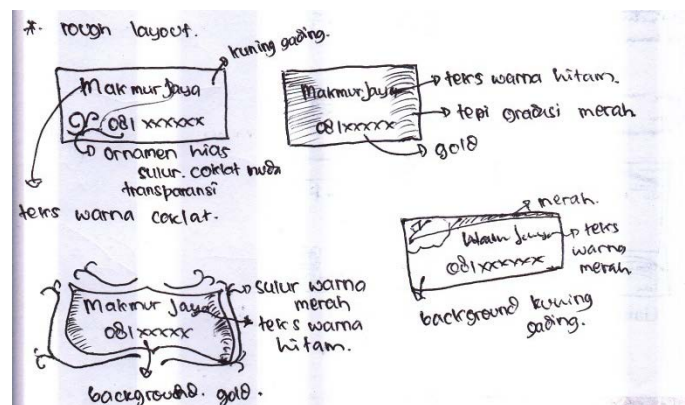 *. rough layout.
kuning gading.
Makmur Jaya
081 xxxxxx
ornamen hias
sulur. coklat muda
transparansi
teks warna coklat.
Makmur Jaya
081xxxxx
teks warna hitam.
tepi gradasi merah
gold
Makmur Jaya
081xxxxx
sulur warna
merah
teks warna
hitam.
background. gold.
merah.
Jaya
081xxxxxx
teks
warna
merah.
background kuning
gading.